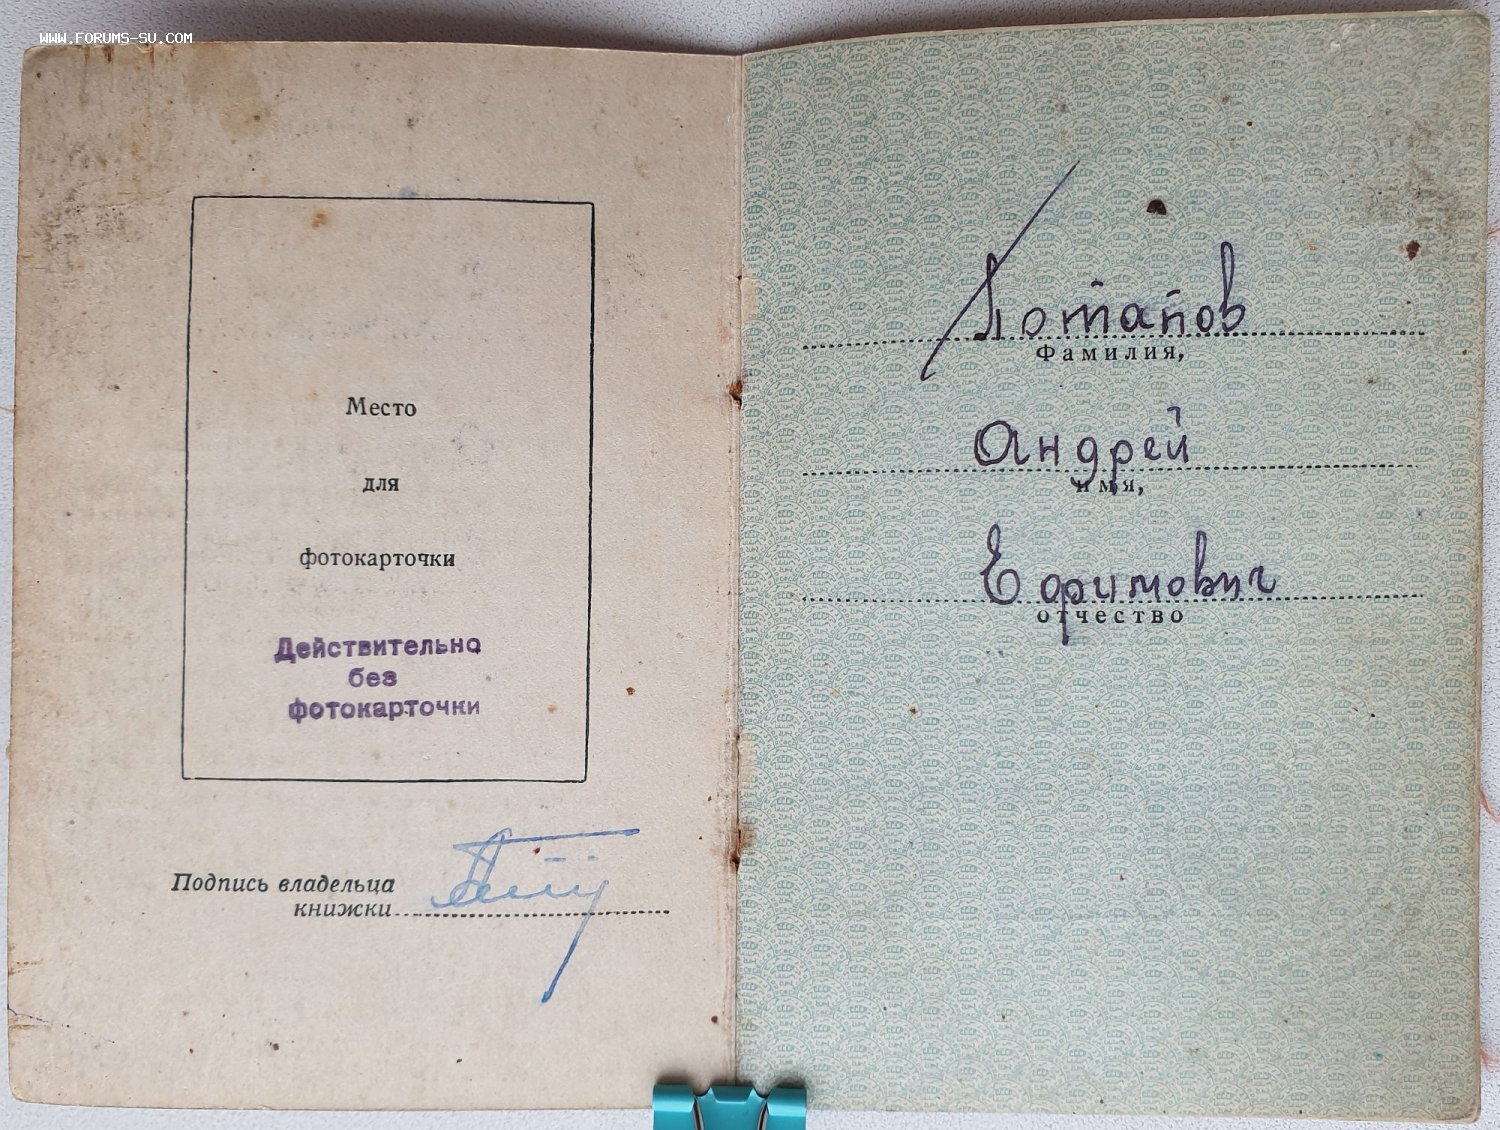 WWW.FORUMS-SU.COM
Место
для
фотокарточки
Действительно
без
фотокарточки
Подпись владельца
книжки
Потапов
Фамилия,
Андрей
имя,
Ефимович
отчество